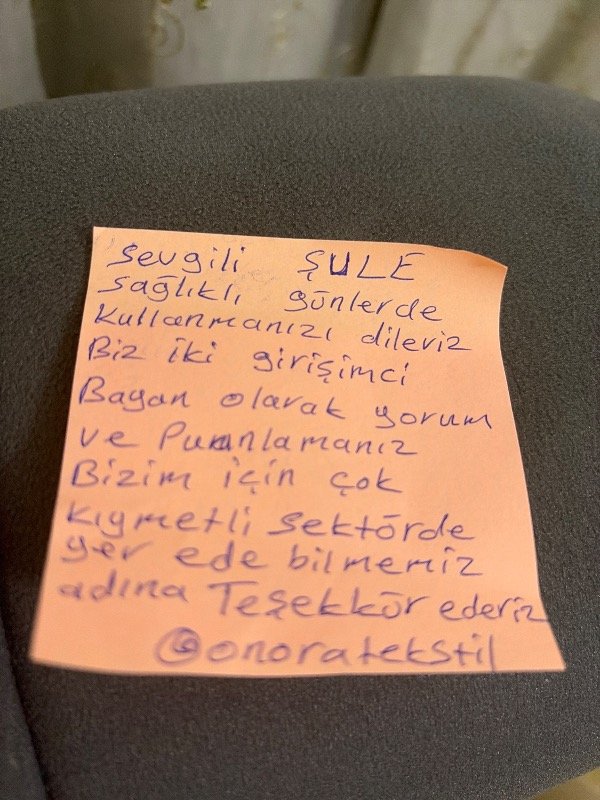 Sevgili ŞULE
Sağlıklı günlerde
Kullanmanızı dileriz
Biz iki girişimci
Bayan olarak yorum
ve Puanlamanız
Bizim için çok
kıymetli Sektörde
yer ede bilmemiz
adına Teşekkür ederiz
@onoratekstil